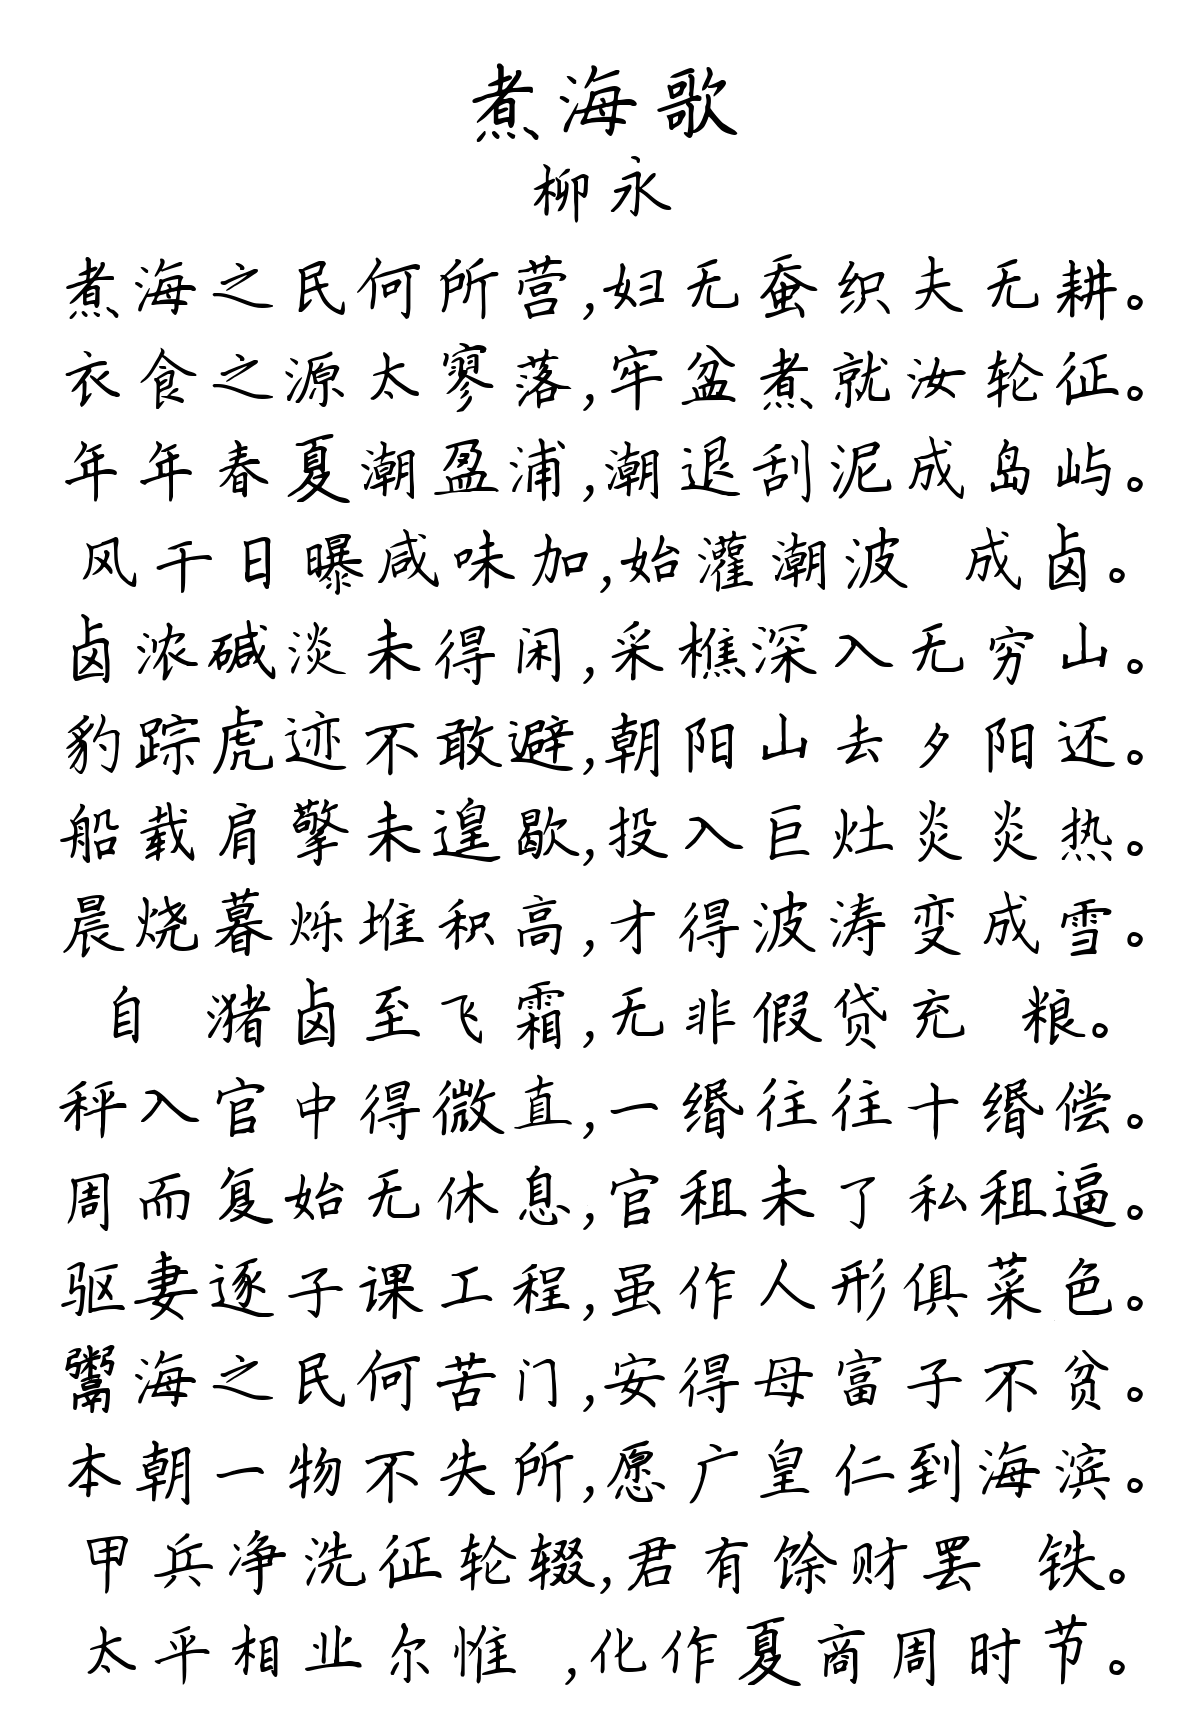 煮海歌
柳永
煮海之民何所营,妇无蚕织夫无耕。
衣食之源太寥落,牢盆煮就汝轮征。
年年春夏潮盈浦,潮退刮泥成岛屿。
风干日曝咸味加,始灌潮波 成卤。
卤浓碱淡未得闲,采樵深入无穷山。
豹踪虎迹不敢避,朝阳山去夕阳还。
船载肩擎未遑歇,投入巨灶炎炎热。
晨烧暮烁堆积高,才得波涛变成雪。
自 潴卤至飞霜,无非假贷充 粮。
秤入官中得微直,一缗往往十缗偿。
周而复始无休息,官租未了私租逼。
驱妻逐子课工程,虽作人形俱菜色。
鬻海之民何苦门,安得母富子不贫。
本朝一物不失所,愿广皇仁到海滨。
甲兵净洗征轮辍,君有馀财罢 铁。
太平相业尔惟 ,化作夏商周时节。